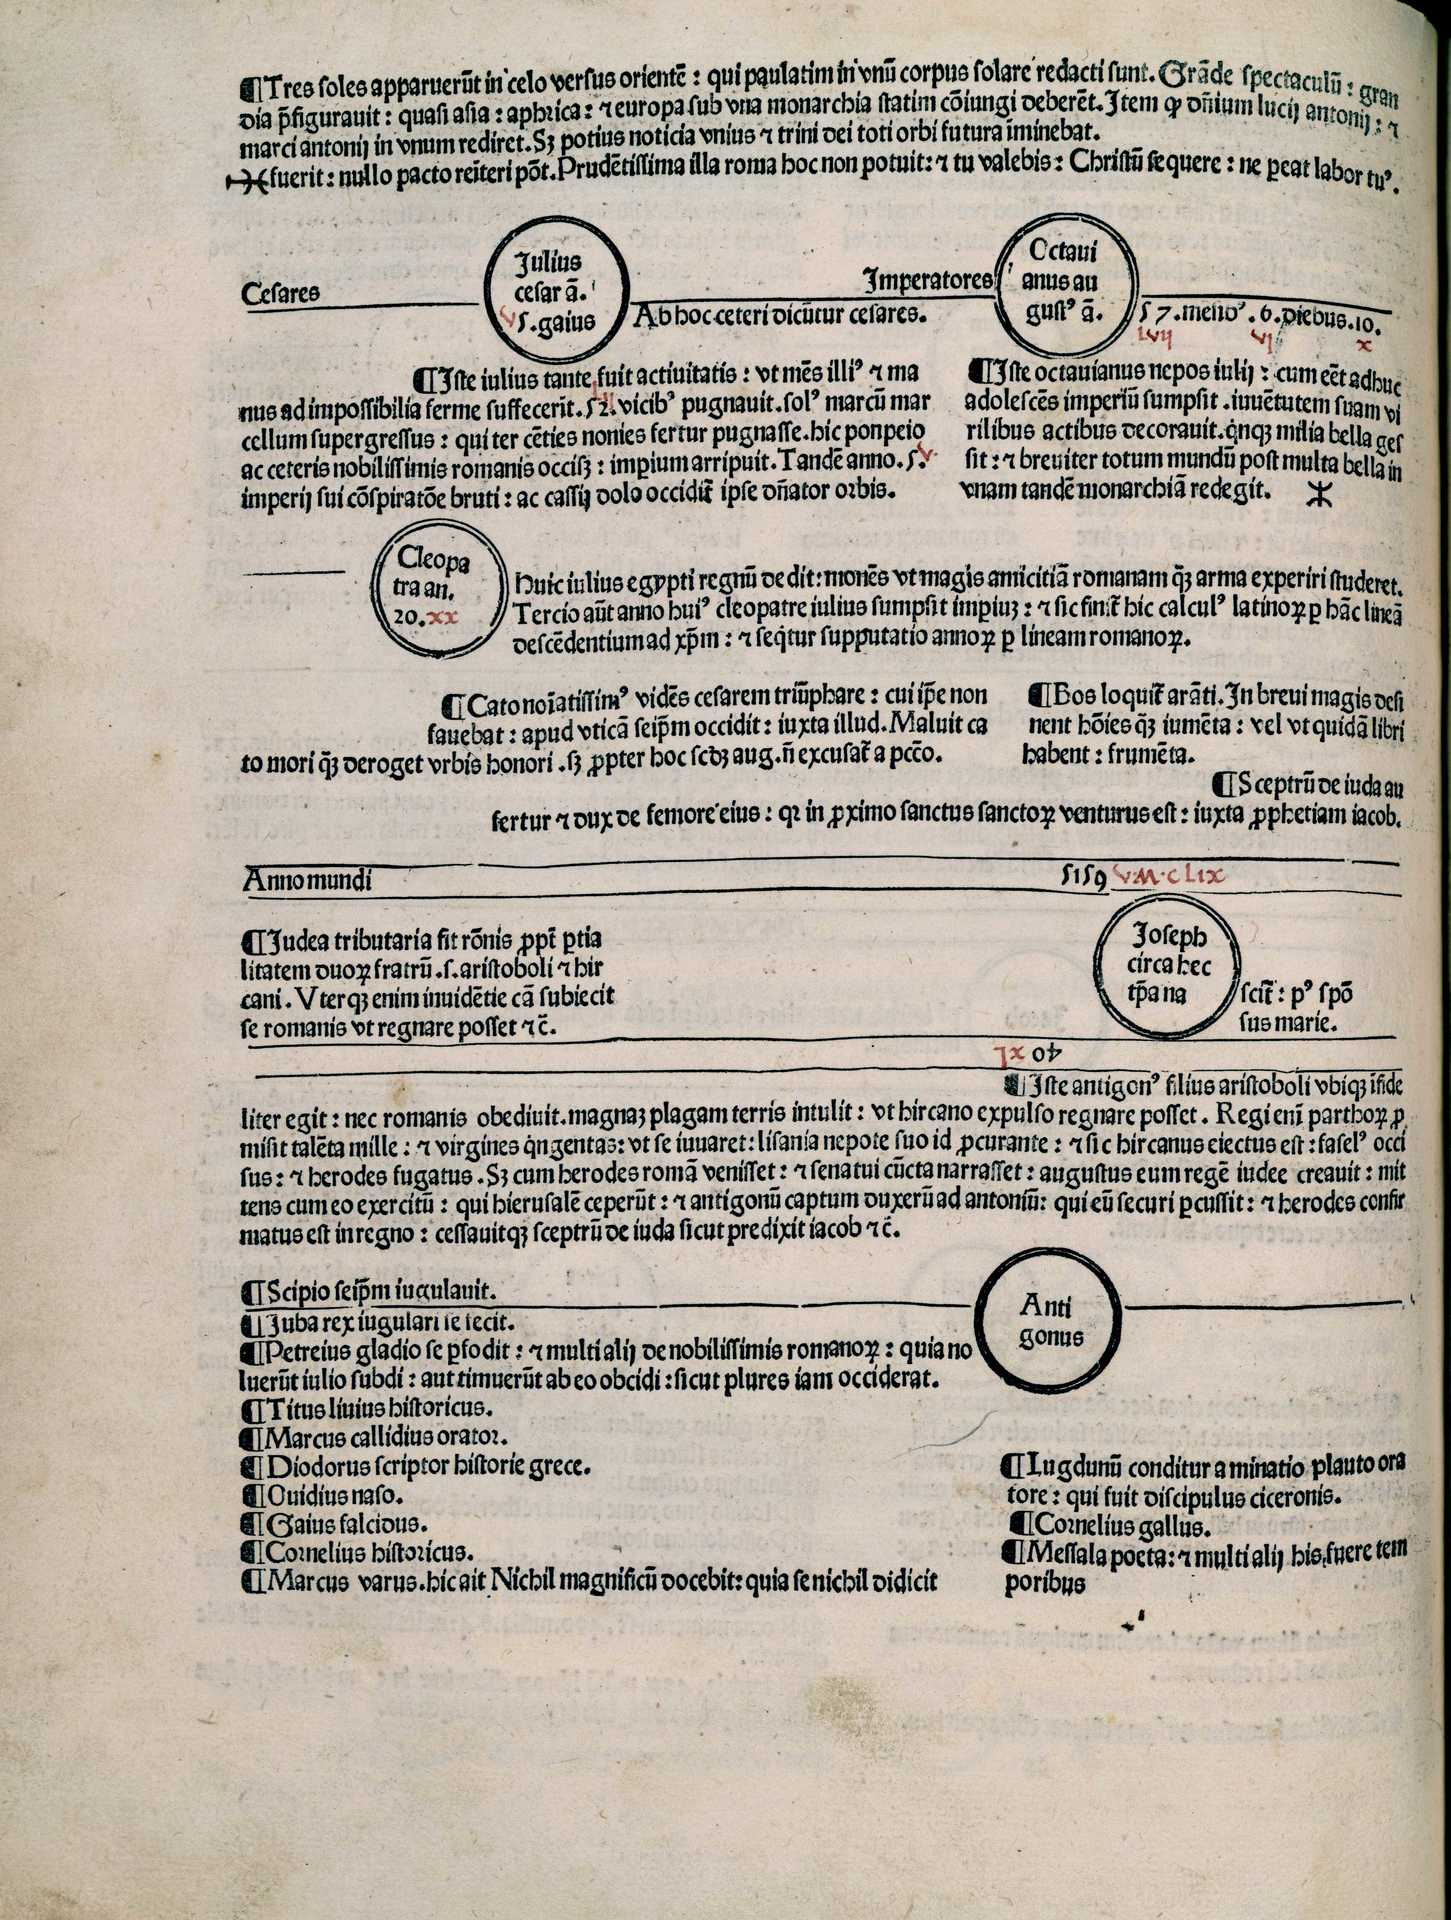 ¶Tres soles apparuerūt in celo versus orientē : qui paulatim in vnū corpus solare redacti sunt. Grāde spectaculū : gran
dia p̄figurauit : quasi asia : aphrica : ⁊ europa sub vna monarchia statim cōiungi deberēt. Item ꝙ dn̄ium lucij antonij : ⁊
marci antonij in vnum rediret. Sꝫ potius noticia vnius ⁊ trini dei toti orbi futura īminebat.
fuerit : nullo pacto reīteri pōt. Prudētissima illa roma hoc non potuit : ⁊ tu valebis : Christū sequere : ne ꝑeat labor tuꝰ.
Cesares
Julius
cesar ā.
v 5. gaius
Ab hoc ceteri dicūtur cesares.
Imperatores
Octaui
anus au
gustꝰ ā.
57. mensꝰ. 6. diebus. 10.
lvij vj x
¶Iste iulius tante fuit actiuitatis : vt mēs illiꝰ ⁊ ma
nus ad impossibilia ferme suffecerīt. 52. vicibꝰ pugnauit. solꝰ marcū mar
cellum supergressus : qui ter cēties nonies fertur pugnasse. hic ponpeio
ac ceteris nobilissimis romanis occisꝫ : imꝑium arripuit. Tandē anno. 5. v
imperij sui cōspiratōe bruti : ac cassij dolo occidit̄ ipse dn̄ator orbis.
¶Iste octauianus nepos iulij : cum eēt adhuc
adolescēs imperiū sumpsit . iuuētutem suam vi
rilibus actibus decorauit. q̇nqꝫ milia bella ges
sit : ⁊ breuiter totum mundū post multa bella in
vnam tandē monarchiā redegit.
Cleopa
tra an.
20. xx
Huic iulius egypti regnū dedit : monēs vt magis amicitiā romanam qꝫ̄ arma experiri studeret.
Tercio aūt anno huiꝰ cleopatre iulius sumpsit imꝑiuꝫ : ⁊ sic finit̄ hic calculꝰ latinoꝝ ꝑ hāc lineā
descēdentium ad xp̄m : ⁊ seq̇tur supputatio annoꝝ ꝑ lineam romanoꝝ.
¶Cato noīatissimꝰ vidēs cesarem triūphare : cui ip̄e non
fauebat : apud vticā seip̄m occidit : iuxta illud. Maluit ca
to mori qꝫ̄ deroget vrbis honori . sꝫ ꝓpter hoc scd̄ꝫ aug. n̄ excusat̄ a pcc̄o.
¶Bos loquit̄ arāti. In breui magis desi
nent hōies qꝫ̄ iumēta : vel vt quidā libri
habent : frumēta.
¶Sceptrū de iuda au
fertur ⁊ dux de femore eius : qꝛ in ꝓximo sanctus sanctoꝝ venturus est : iuxta ꝓphetiam iacob.
Anno mundi
5159 vM.CLIX
¶Judea tributaria fit rōnis ꝓpt̄ ꝑtia
litatem duoꝝ fratrū . s. aristoboli ⁊ hir
cani. Vterqꝫ enim inuidētie cā subiecit
se romanis vt regnare posset ⁊ c̄.
Joseph
circa hec
tp̄a na
scit̄ : pꝰ spō
sus marie.
40
¶Iste antigonꝰ filius aristoboli vbiqꝫ īfide
liter egit : nec romanis obediuit. magnaꝫ plagam terris intulit : vt hircano expulso regnare posset. Regi enī parthoꝝ ꝓ
misit talēta mille : ⁊ virgines q̇ngentas : vt se iuuaret : lisania nepote suo id ꝓcurante : ⁊ sic hircanus eiectus est : faselꝰ occi
sus : ⁊ herodes fugatus . Sꝫ cum herodes romā venisset : ⁊ senatui cūcta narrasset : augustus eum regē iudee creauit : mit
tens cum eo exercitū : qui hierusalē ceperūt : ⁊ antigonū captum duxerūt ad antoniū : qui eū securi ꝑcussit : ⁊ herodes confir
matus est in regno : cessauitqꝫ sceptrū de iuda sicut predixit iacob ⁊ c̄.
Anti
gonus
¶Scipio seip̄m iugulauit.
¶Juba rex iugulari se fecit.
¶Petreius gladio se ꝑfodit : ⁊ multi alij de nobilissimis romanoꝝ : quia no
luerūt iulio subdi : aut timuerūt ab eo obcidi : sicut plures iam occiderat.
¶Titus liuius historicus.
¶Marcus callidius orator.
¶Diodorus scriptor historie grece.
¶Ouidius naso.
¶Gaius falcidus.
¶Cornelius historicus.
¶Marcus varus. hic ait Nichil magnificū docebit : quia se nichil didicit
¶Lugdunū conditur a minatio plauto ora
tore : qui fuit discipulus ciceronis.
¶Cornelius gallus.
¶Messala poeta : ⁊ multi alij his fuere tem
poribus